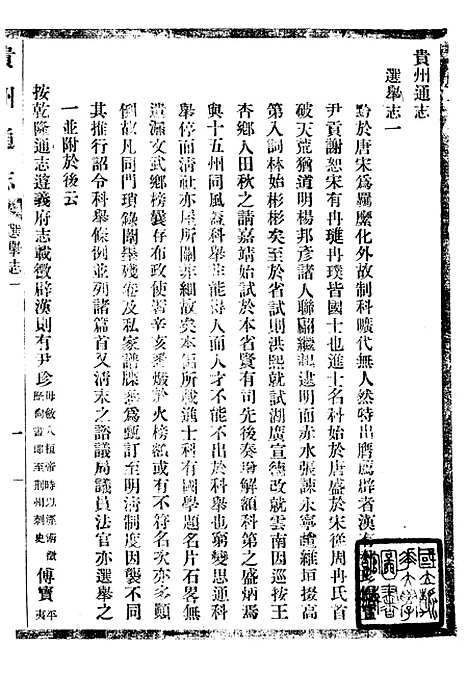 貴州通志
選舉志一
黔於唐宋爲羈縻化外故制科曠代無人然特出膺薦辟者漢有
尹貢謝恕宋有冉璡冉璞皆國士也進士名科始於唐盛於宋從周冉氏首
破天荒猶道明楊邦彥諸人聯翩繼起逮明而赤水張諫永寧趙維垣掇高
第入詞林始彬彬矣至於省試則洪熙就試湖廣宣德改就雲南因巡按王
杏鄉人田秋之請嘉靖始試於本省賢有司先後奏增解額科第之盛炳焉
與十五州同風蓋科舉不能得人而人才不能不出於科舉也窮變思通科
舉停而淸社亦屋所關非細故矣本省所載進士科有國學題名片石畧無
遺漏文武鄉榜曩存布政使署辛亥燬於火榜額或有不符名次亦多顚
倒故凡同門瑣錄闈舉殘卷及私家譜牒參爲甄訂至明淸制度因襲不同
其推行詔令科舉條例並列諸篇首又淸末之諮議局議員法官亦選舉之
一並附於後云
按乾隆通志遵義府志載徵辟漢則有尹珍
毋斂人桓帝時以經術徵
歷尙書郎至荆州刺史
傅寶
平
夷
貴州通志
選舉志一
一